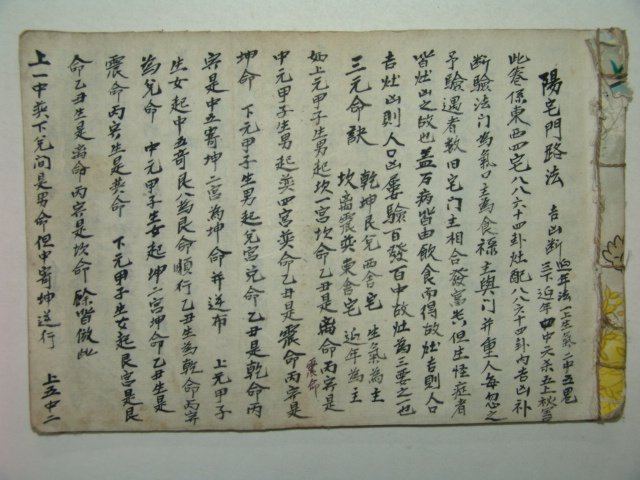 陽宅門路法 吉凶断
此卷係東西四宅八八六十四卦灶配八八六十四卦內吉凶补
断驗法門為氣口主為食祿主與門并重人每忽之
予驗過者数旧宅門主相合發富贵但生怪症者
皆灶凶之故也盖万病皆由飲食而得故灶吉則人口
吉灶凶則人口凶屡驗百發百中故灶為三要之一也
三元命訣 乾坤艮兌西舍宅 生氣為主
坎离震巽東舍宅 延年為主
如上元甲子生男起坎一宮坎命乙丑是离命丙寅是
震命
中元甲子生男起巽四宮巽命乙丑是震命丙寅是
坤命 下元甲子生男起兌宮兌命乙丑是乾命丙
寅是中五寄坤二宮為坤命并逆布 上元甲子
生女起中五寄艮八為艮命順行乙丑生為乾命丙寅
為兌命 中元甲子生女起坤二宮坤命乙丑生是
震命丙寅生是巽命 下元甲子生女起艮宮是艮
命乙丑生是离命丙寅是坎命 餘皆倣此
上一中巽下兌间是男命但中寄坤逆行 上五中二